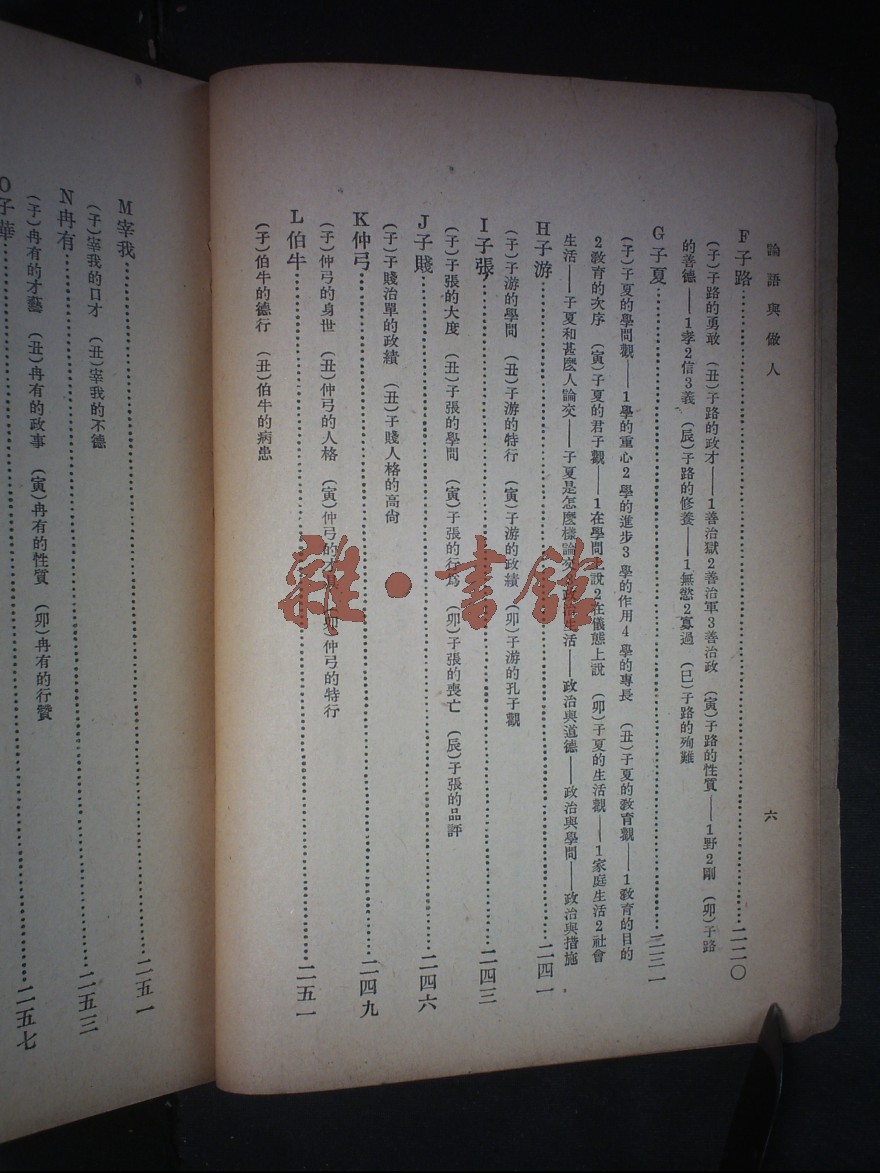 論語與做人
六
F子路……二二〇
(子)子路的勇敢 (丑)子路的政才——1善治獄2善治軍3善治政 (寅)子路的性質——1野2剛 (卯)子路
的善德——1孝2信3義 (辰)子路的修養——1無慾2寡過 (巳)子路的殉難
G子夏……二三一
(子)子夏的學問觀——1學的重心2學的進步3學的作用4學的專長 (丑)子夏的教育觀——1教育的目的
2教育的次序 (寅)子夏的君子觀——1在學問上說2在儀態上說 (卯)子夏的生活觀——1家庭生活2社會
生活——子夏和甚麽人論交——子夏是怎麽樣論交 政治生活——政治與道德——政治與學問——政治與措施
H子游……二四一
(子)子游的學問 (丑)子游的特行 (寅)子游的政績 (卯)子游的孔子觀
I子張……二四三
(子)子張的大度 (丑)子張的學問 (寅)子張的行爲 (卯)子張的喪亡 (辰)子張的品評
J子賤……二四六
(子)子賤治單的政績 (丑)子賤人格的高尙
K仲弓……二四九
(子)仲弓的身世 (丑)仲弓的人格 (寅)仲弓的 (卯)仲弓的特行
L伯牛……二五一
(子)伯牛的德行 (丑)伯牛的病患
M宰我……二五一
(子)宰我的口才 (丑)宰我的不德
N冉有……二五三
(子)冉有的才藝 (丑)冉有的政事 (寅)冉有的性質 (卯)冉有的行贊
O子華……二五七
雜·書館